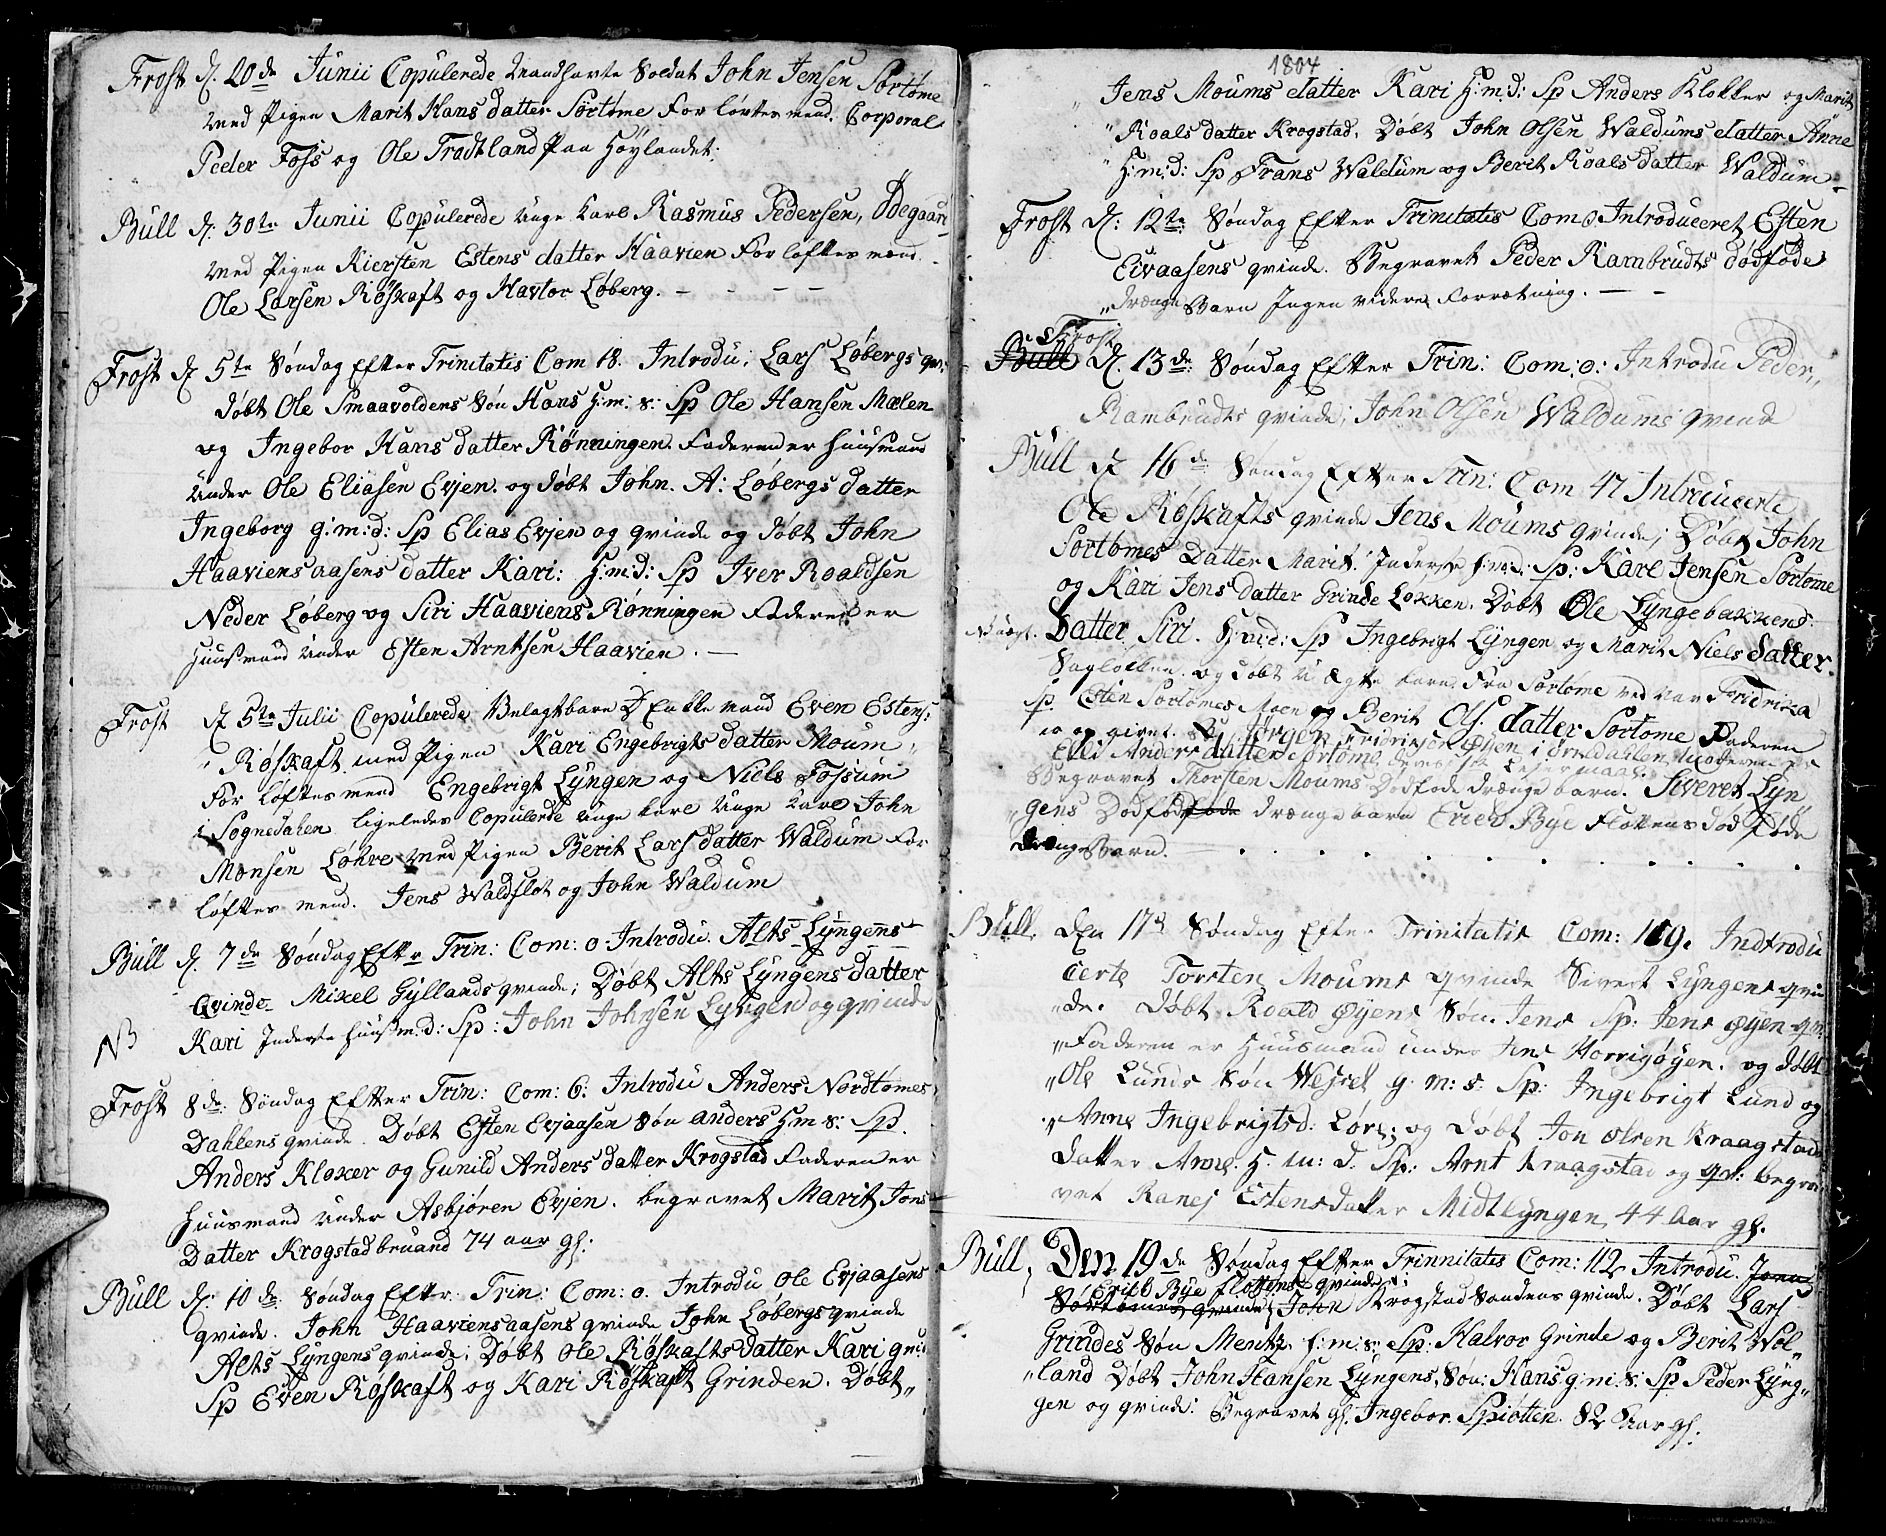 Frost d. 20de Junii Copulerede Mandhavte Soldat John Jensen Sørtøme
med Pigen Marit Hans datter Sørtøme Forløvtes mend. Corporal
Peder Foss og Ole Trødtland paa Høylandet.
Bull d. 30te Junii Copulerede Unge karl Rasmus Pedersen, Ødegaard
med Pigen Kiersten Estens datter Haavien Forløftes mænd.
Ole Larsen Røskaft og Havlor Løberg.
Frost d 5te Søndag Efter Trinitatis Com 18. Introdu: Lars Løbergs qv:
døbt Ole Smaavoldens Søn Hans H: m: s: Sp Ole Hansen Mælen
og Ingebor Hans datter Rønningen. Faderen er Huusmand
under Ole Eliasen Evjen. og døbt John. A: Løbergs datter
Ingeborg g: m: d: Sp Elias Evjen og qvinde og døbt John
Haaviens aasens datter Kari: H: m: d: Sp Iver Roaldsen
Neder Løberg og Siri Haaviens Rønningen Faderen er
Huusmand under Esten Arntsen Haavien.
Frost d 5te Julii Copulerede Velagtbare Enkke mand Even Estens:
Røskaft med Pigen Kari Engebrigts datter Moum
For løftes mend Engebrigt Lyngen og Niels Fossum
i Sognedalen ligeledes Copulerede unge karl Unge Karl John
Monsen Løhre med Pigen Berit Lars datter Waldum For
løftes mend. Jens Waldflot og John Waldum
Bull d. 7de Søndag Eftr Trin: Com: 0 Introdu: Alts Lyngens
Qvinde Mikel Gyllands qvinde; Døbt Alts Lyngens datter
NB Kari Inderste Huus m: d: Sp: John Johnsen Lyngen og qvinde
Frost 8de: Søndag Efter Trin: Com: 6: Introdu Anders Nordtømes
Dahlens qvinde. Døbt Esten Evjaasen Søn anders H m s: Sp.
Anders Kloker og Gunild Anders datter Krogstad Faderen er
Huusmand under Asbjøren Evjen. begravet Marit Jons
Datter Krogstadbruand 74 aar gl:
Bull d: 10de: Søndag Eftr Trin: Com: 0. Introdu Ole Evjaasens
qvinde. John Haaviensaasens qvinde John Løbergs qvinde
Alts Lyngens qvinde; Døbt Ole Røskafts datter Kari g m:d
Sp Even Røskaft og Kari Røskaft Grinden. Døbt
1804
Jens Moums datter Kari H: m: d: Sp Anders Klokker og Marit
Roals datter Krogstad. Døbt John Olsen Waldums datter Anne
H: m: d: Sp Frans Waldum og Berit Roals datter Waldum
Frost d: 12te Søndag Efter Trinitatis Com 0. Introduceret Esten
Eivaasens qvinde. Begravet Peder Rambrudts dødføde
drænge Barn Ingen videre Forrætning.
Frost
Bull d. 13de: Søndag Efter Trin: Com: 0: Introdu Peder
Rambrudts qvinde; John Olsen Waldums qvinde
Bull d 16de Søndag Efter Trin: Com 47 Introducerte
Ole Røskafts qvinde Jens Moums qvinde; Døbt John
Sørtømes Datter Marit. Inderste H: m: d: Sp: Karl Jensen Sørtøme
og Kari Jens datter Grinde Løkken. Døbt Ole Lyngebakkend
Datter Siri. H: m: d: Sp Ingebrigt Lyngen og Marit Niels datter
og døbt U Ægte barn Fra Sørtøme ved navn Fridrica
Sp Esten Sørtømes Moen og Berit Ols. datter Sørtøme Faderen
Jørgen Fridrichsen Øyen i Ørkedahlen, Moderen er
Elli Anders datter Sørtøme,
Begravet Thorsten Moums Dødføde drænge barn. Siveret Lyn
gens Dødføføde drænge barn Erich Bye Flottens dødføde
drænge Barn.
Bull. Den 17d Søndag Efter Trinitatis Com: 109. Indtrodu
certe Torsten Moums qvinde Sivert Lyngens qvin
de. Døbt Roald Øyens Søn. Jens Sp: Jens Øyen qv:
Faderen er Huusmand under Jens Horrigøyen. og døbt
Ole Lunds Søn Wessel g: m: s. Sp: Ingebrigt Lund og
Anne Ingebrigtsd: Løre; og døbt Jon Olsen Kraagstads
datter Anne. H. m: d. Sp: Arnt Kraagstad og qv: begra
vet Ranej Estensdatter Midtlyngen, 44 Aar gl.
Bull, Den 19de Søndag Efter Trinnitatis Com: 112 Introdu. Jonas
Erich Bye Flottens qvinde;
Sørtømes qvinde, John Krogstad Sandens qvinde. Døbt Lars
Grindes Søn Mentz. H: m: s: Sp: Halvor Grinde og Berit Wol
land Døbt John Hansen Lyngens, Søn: Hans g: m: s: Sp Peder Lyng
gen og qvinde: Begravet gl. Ingebor Spiøtten. 82 Aar gl.